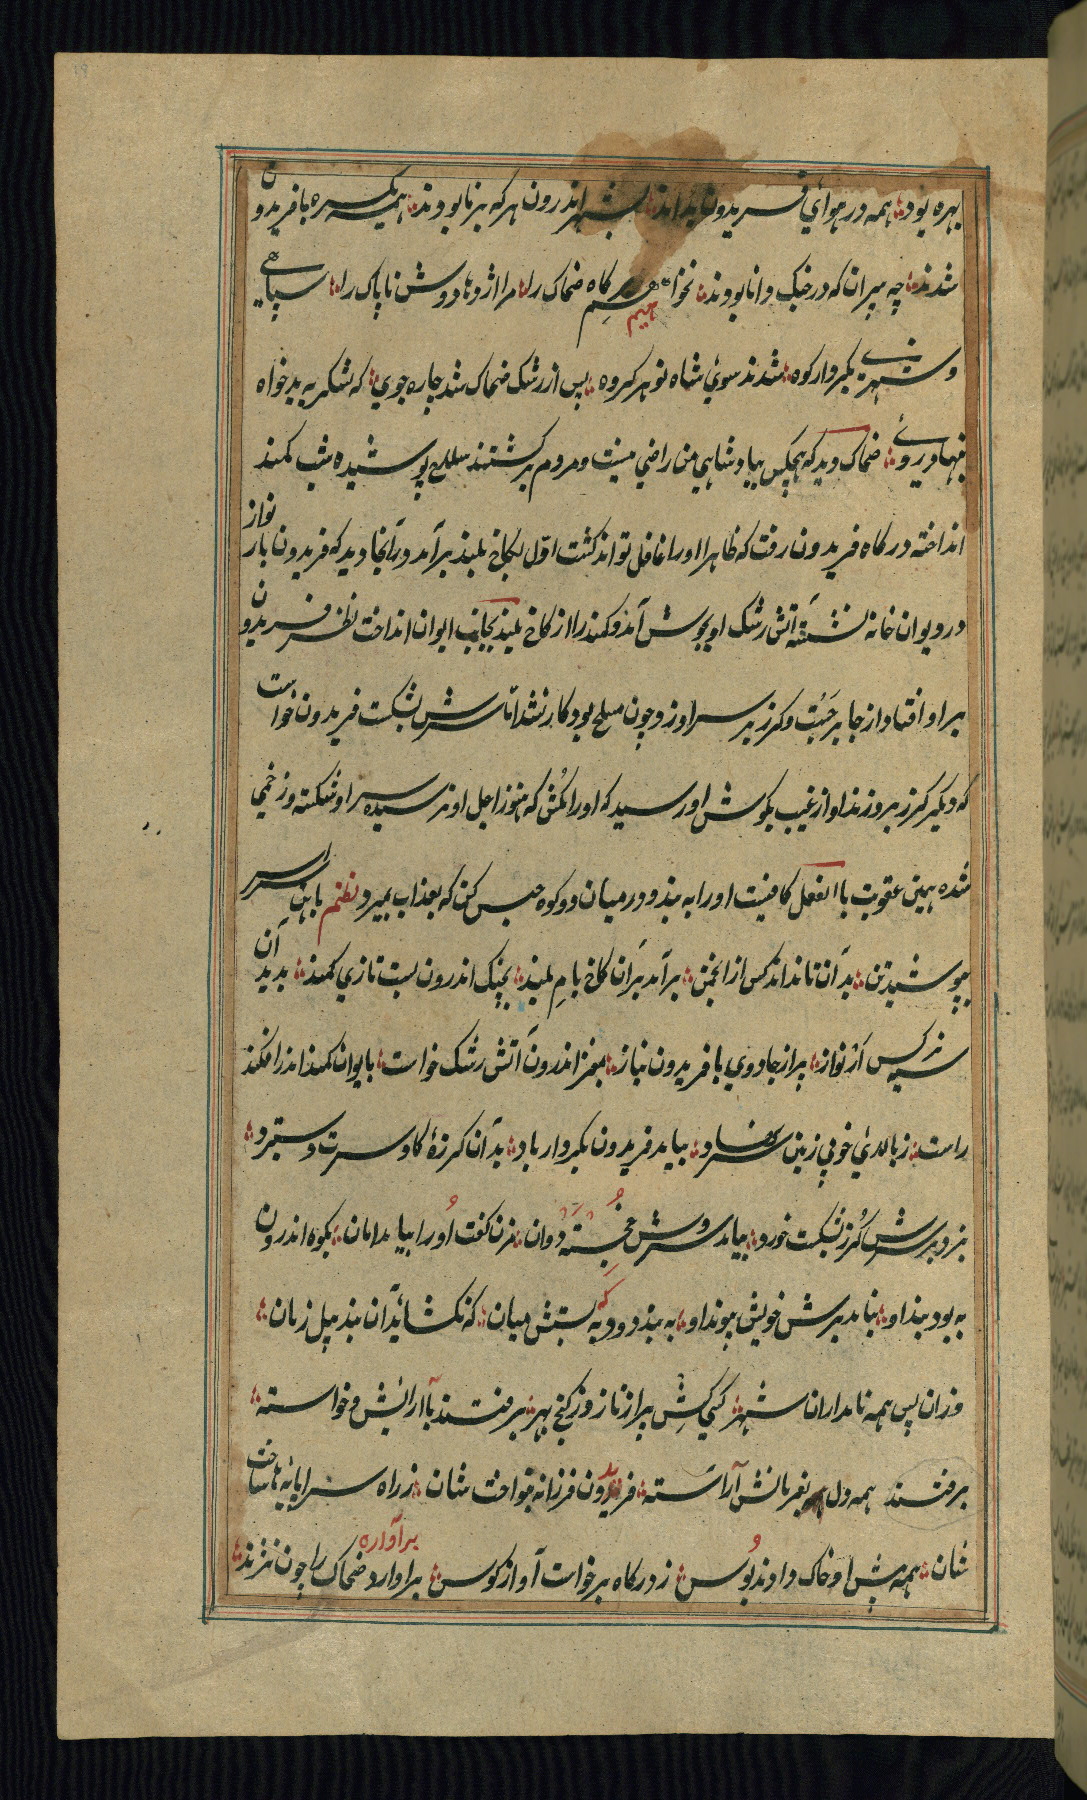 بهره بود همه در هوای فریدون بدند بشهر اندرون هر که برنا بودند همه یکسره با فریدون
شدند چه پیران که در جنک دانا بودند نخواهیم بر کاه ضحاک را مرا اژدها دوش ناپاک را سپاهی
و شهری بکردار کوه شدند سوی شاه نو هر کروه پس از رشک ضحاک شد چاره جوی که لشکر به بدخواه
بنهاد روی ضحاک دید که هیچکس بپادشاهی من راضی نیست و مردم برکشتند سلاح پوشیده شب کمند
انداخته در کاه فریدون رفت که ظاهرا او را غافل تواند کشت اول بکاخ بلند برآمد و آنجا دید که فریدون با ارنواز
در دیوان خانه نشسته آتش رشک او بجوش آمد و کمند را از کاخ بلند بجانب ایوان انداخت نظر فریدون
بر او افتاد از جا برجست و کرز بر سر او زد چون مسلح بود کار نشد اما سرش بشکست فریدون خواست
که دیکر کرز برو زند آواز غیب بکوش او رسید که او را مکش که هنوز اجل او نرسیده سر او شکسته و زخمی
شده همین عقوبت بالفعل کافیست او را به بند و در میان دو کوه حبس کن که بعذاب بمیرد نظم بآهن سراسر
بپوشید تن بدان تا نداند کس از انجمن برآمد بران کاخ بام بلند بچنک اندرون شست یازی کمند بدید آن
سیه نرکس ارنواز پر از جادوی با فریدون نیاز بمغز اندرون آتش رشک خواست بایوان کمند اندر افکند
راست ز بالای خوبی زمین بیامد فریدون بکردار باد بدان کرزهٔ کاوسر دست برد
بزد بر سرش کرز بشکست خورد بیامد سروش خجسته دوان مزن کفت او را نیامد زمان بکوه اندرون
به بود بند او نیاید برش خویش پیوند او به بند دو دست و میان که نکشاید آن بند پیل ژیان
وزان پس همه نامداران شهر کسی کش پر از ناز و ز کنج بهر برفتند با آرایش و خواسته
برفتند همه دل بفرمانش آراسته فریدون فرزانه بنواخت شان ز راه سزا پایه‌ها ساخت
شان همه پیش او خاک دادند بوس ز درکاه برخاست آواز کوس برآوارد ضحاک را چون نژند
برآواره